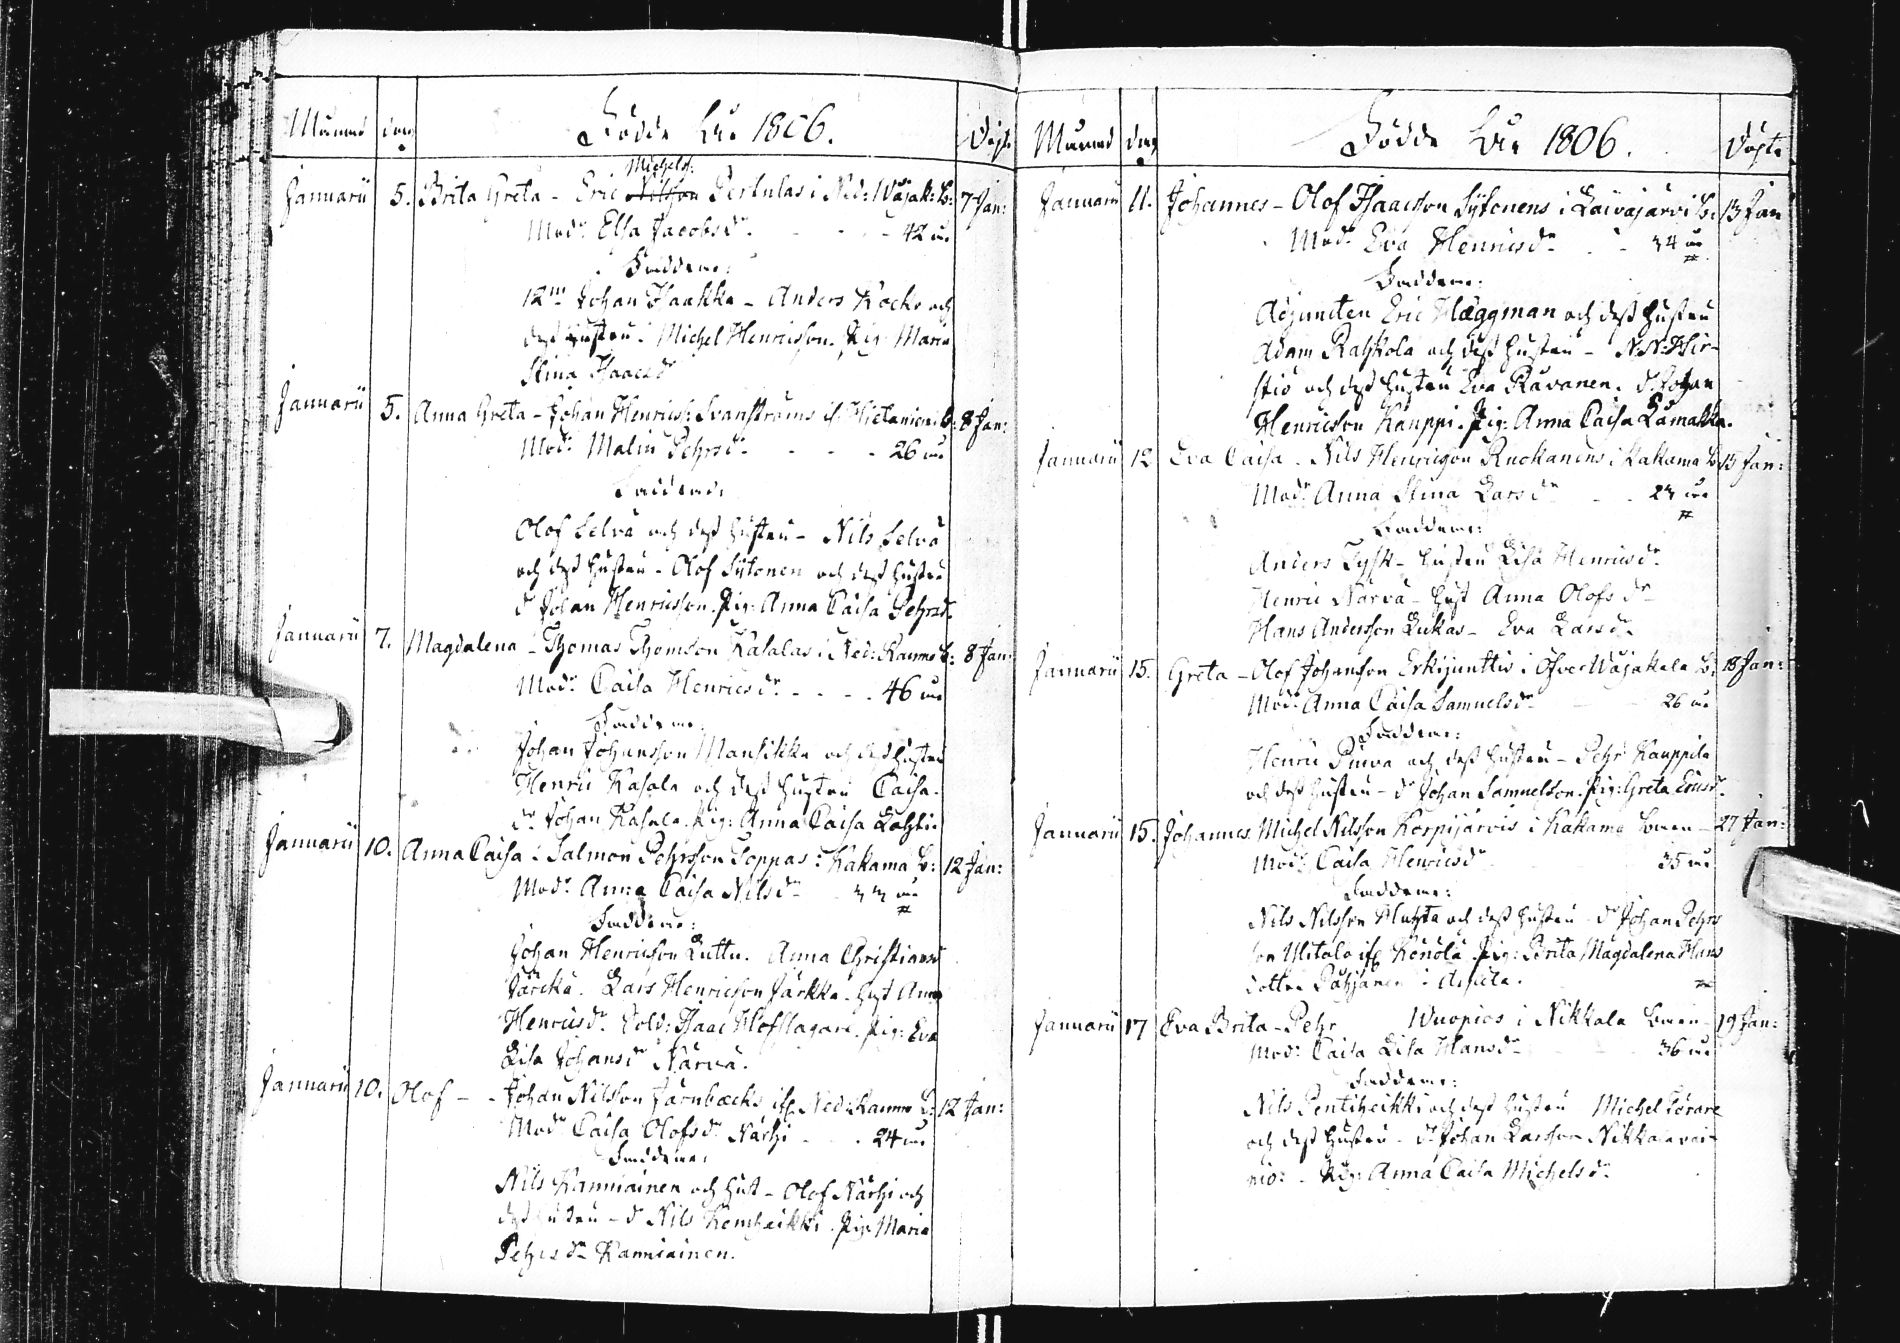 Månad dag Födde År 1806. Döpte
Michels:
Januarii 5. Brita Greta - Eric Nilsson Pertulas i Ned: Wojak: B: 7 Jan:
Mod: Elsa Jacobsdr 42 år
Faddrar:
12m Johan Haakka - Anders Kocko och
dess hustru. Michel Henricsson. Pig: Maria
Stina Isacsdr
Januarii 5. Anna Greta - Johan Henrics: Svanströms if Hietaniemi b: 8 Jan:
Modr Malin Pehrsdr 26 år
Faddrar:
Olof Selvä och dess hustru - Nils Selvä
och dess hustru - Olof Sytonen och dess hustru
dr Johan Henricsson. Pig: Anna Caisa Pehrsdr
Januarii 7. Magdalena - Thomas Thomson Kasalas i Ned: Raumo b: 8 Jan:
Modr Caisa Henricsdr 46 år
Faddrar:
Johan Johansson Mansikka och dess hustru
Henric Kasala och dess hustru Caisa.
dr Johan Kasala. Pig: Anna Caisa Lahti.
Januarii 10. Anna Caisa - Salmon Pehrsson Soppas i Kakama b: 12 Jan:
Modr Anna Caisa Nilsdr 33 år
Faddrar:
Johan Henricsson Luttu. Anna Christiansd
Järckä. Lars Henricsson Järkkä. hust Anna
Henricsdr. Sold: Isaac Hofslagare. Pig: Eva
Lisa Johansdr Närvä.
Januarii 10. Olof - Johan Nilsson Järnbäcks if Ned: Raumo b: 12 Jan:
Modr Caisa Olofsdr Närhi 24 år
Faddrar:
Nils Kanniainen och hust - Olof Närhi och
dess hustru - dr Nils Kemheikki. Pig: Maria
Pehrsdr Kanniainen.
Månad dag Födde År 1806. Döpte
Januarii 11. Johannes - Olof Isaacsson Sytonens i Laivajärvi b: 13 Jan
Modr Eva Henricsdr 34 år
Faddrar:
Adjuncten Eric Hæggman och dess hustru
Adam Rahkola och dess hustru - N:N: Hir-
stiö och dess hustru Eva Rävanen. dr Johan
Henricsson Kauppi. Pig: Anna Caisa Lämakka.
Januarii 12 Eva Caisa - Nils Henricsson Ruokanens i Kakama b: 15 Jan:
Modr Anna Stina Larsdr 23 år
Faddrar:
Anders Tysk - hustru Lisa Henricsdr
Henric Närvä - hust Anna Olofsdr
Hans Andersson Lukas - Eva Larsdr
Januarii 15. Greta - Olof Johansson Erkijunttis i Öfver Wojakala b: 18 Jan:
Modr Anna Caisa Samuelsdr 26 år
Faddrar:
Henric Puuva och dess hustru - Pehr Kauppila
och dess hustru - dr Johan Samuelsson. Pig: Greta Ericsd.
Januarii 15. Johannes Michel Nilsson Korpijärvis i Kakama b:men - 27 Jan:
Modr Caisa Henricsdr 35 år
Faddrar:
Nils Nilsson Huhta och dess hustru - dr Johan Pehrs
son Mitala if Könölä. Pig: Brita Magdalena Hans
dotter Päkjänen i Arpela.
Januarii 17 Eva Brita - Pehr Wuopios i Nikkala b:men - 19 Jan:
Modr Caisa Lisa Hansdr 36 år
Faddrar:
Nils Pentiheikki och dess hustru Michel Pörare
och dess hustru - dr Johan Larsson Nikkalavai-
nio. Pig: Anna Caisa Michelsdr